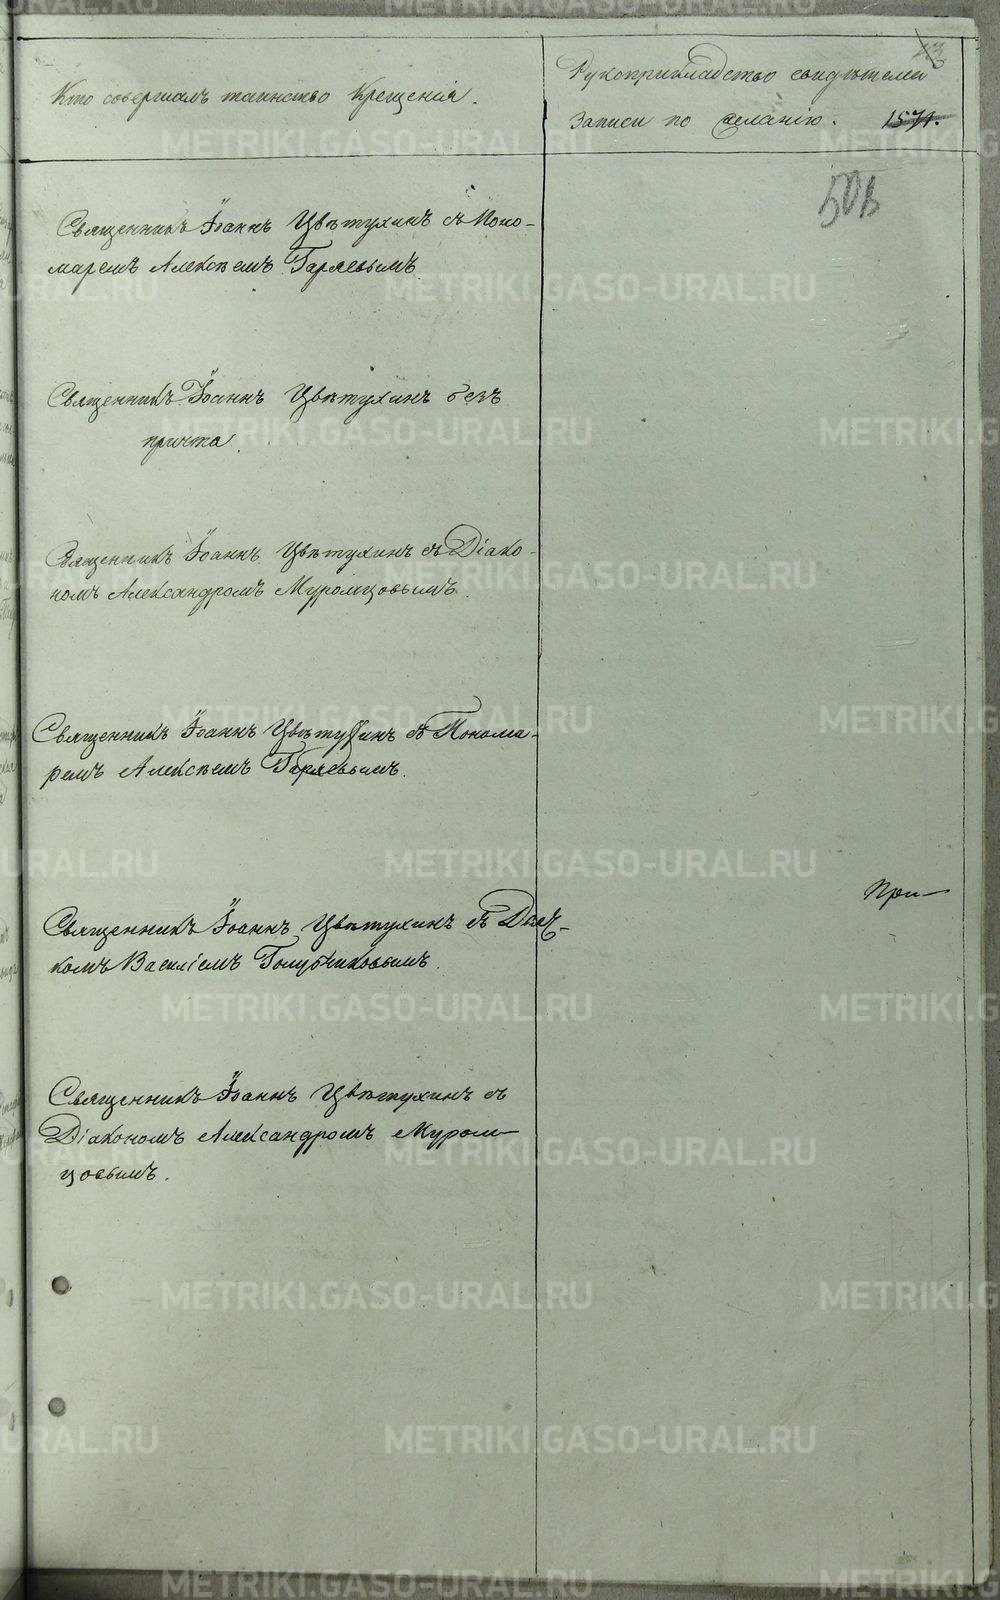 Кто совершалъ таинство Крещенія.
Рукоприкладство свидѣтелей
записи по желанію. 1571.
50в
Священникъ Іоаннъ Цвѣтухинъ съ Поно-
маремъ Алексѣемъ Гаряевымъ.
Священникъ Іоаннъ Цвѣтухинъ безъ
причта.
Священникъ Іоаннъ Цвѣтухинъ съ Діако-
номъ Александромъ Муромцовымъ.
Священникъ Іоаннъ Цвѣтухинъ съ Понома-
ремъ Алексѣемъ Гаряевымъ.
При-
Священникъ Іоаннъ Цвѣтухинъ съ Дьяч-
комъ Василіемъ Голубчиковымъ.
Священникъ Іоаннъ Цвѣтухинъ съ
Діакономъ Александромъ Муром-
цовымъ.
METRIKI.GASO-URAL.RU